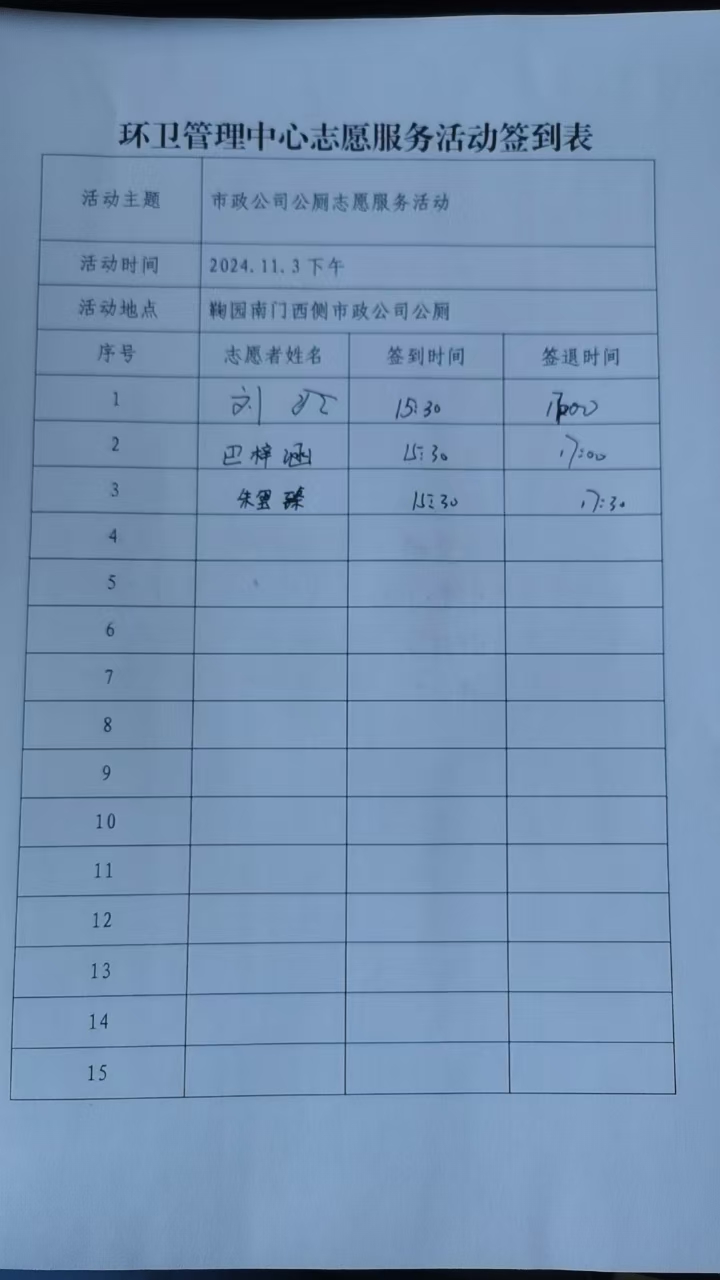 环卫管理中心志愿服务活动签到表
活动主题 市政公司公厕志愿服务活动
活动时间 2024.11.3下午
活动地点 鞠园南门西侧市政公司公厕
序号 志愿者姓名 签到时间 签退时间
1 刘 15:30 17:00
2 巴梓涵 15:30 17:00
3 朱 15:30 17:30
4
5
6
7
8
9
10
11
12
13
14
15